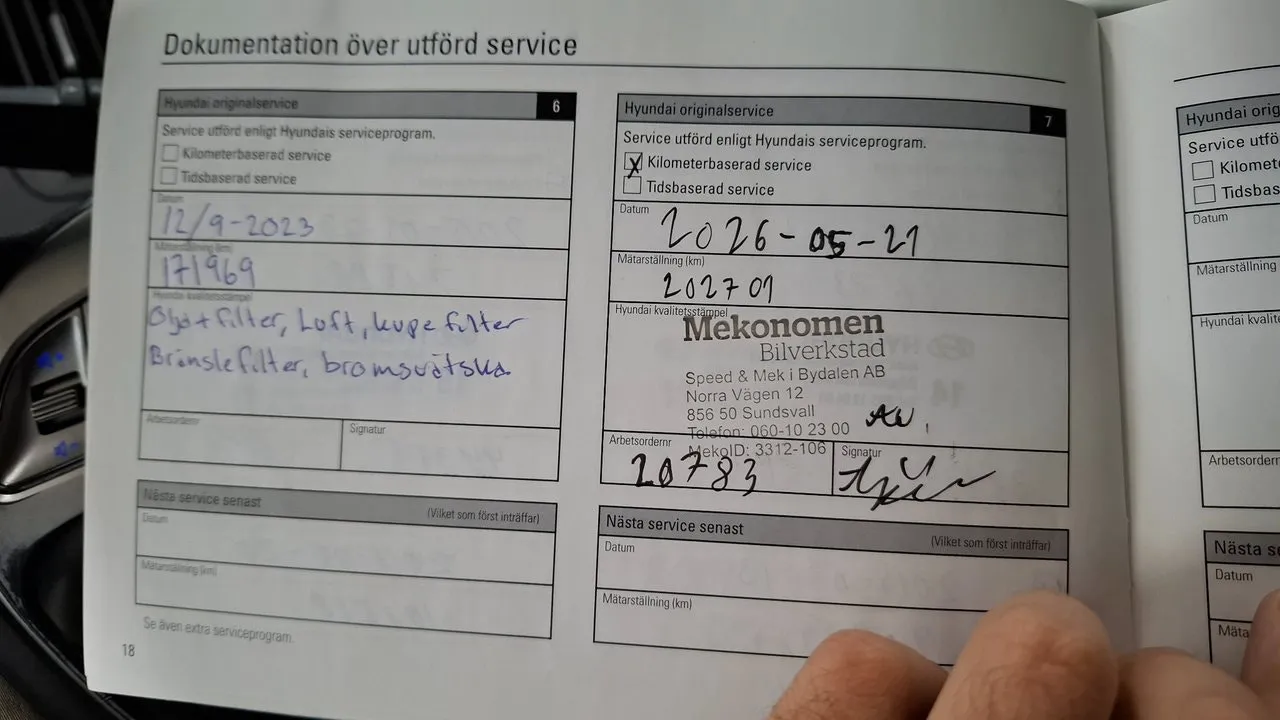 Dokumentation över utförd service
Hyundai originalservice 6
Service utförd enligt Hyundais serviceprogram.
Kilometerbaserad service
Tidsbaserad service
Datum
12/9-2023
Mätarställning (km)
171969
Hyundai kvalitetsstämpel
Olja + filter, Luft, kupefilter
Bränslefilter, bromsvätska
Arbetsordernr
Signatur
Nästa service senast (Vilket som först inträffar)
Datum
Mätarställning (km)
Se även extra serviceprogram
18
Hyundai originalservice 7
Service utförd enligt Hyundais serviceprogram.
X Kilometerbaserad service
Tidsbaserad service
Datum
2026-05-21
Mätarställning (km)
202701
Hyundai kvalitetsstämpel
Mekonomen
Bilverkstad
Speed & Mek i Bydalen AB
Norra Vägen 12
856 50 Sundsvall
Telefon: 060-10 23 00
MekoID: 3312-106
Arbetsordernr
20783
Signatur
Nästa service senast (Vilket som först inträffar)
Datum
Mätarställning (km)
Hyundai orig
Service utfö
Kilomete
Tidsbas
Datum
Mätarställning
Hyundai kvalite
Arbetsordernr
Nästa se
Datum
Mäta